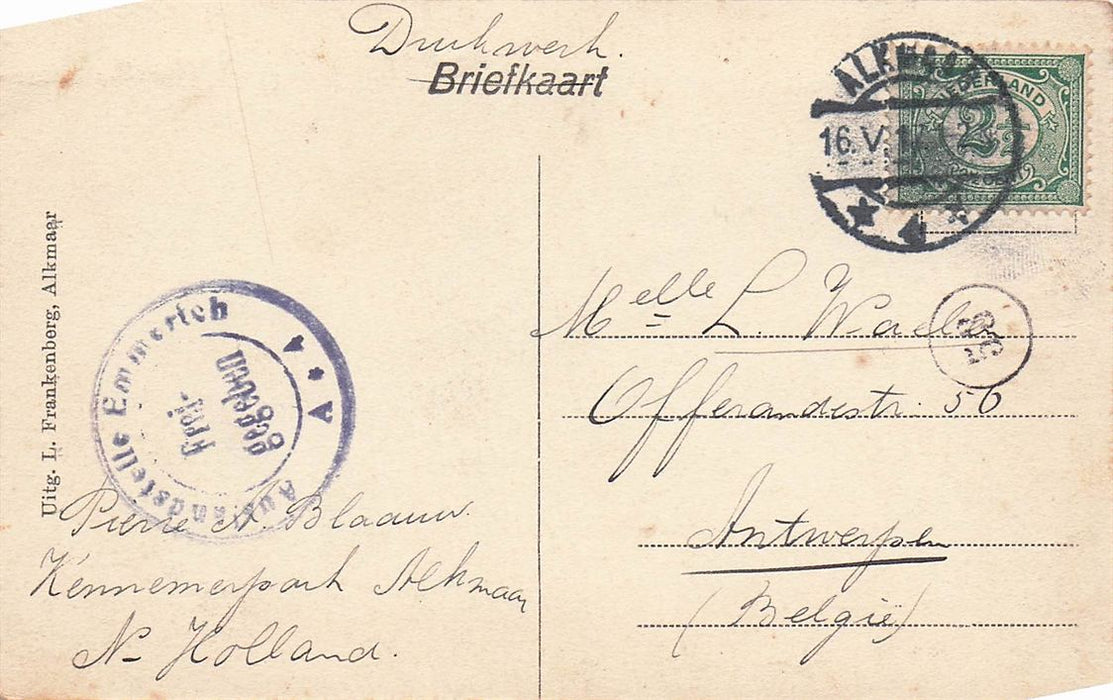 Drukwerk.
Briefkaart
ALKMAAR
16.V.
4
NEDERLAND
2½
CENT
Uitg. L. Frankenberg, Alkmaar
Auslandstelle Emmerich
Frei-
gegeben
A
Melle L.
Offerandestr. 56
Antwerpen
(België)
Pierre N. Blaauw.
Kennemerpark Alkmaar
N- Holland.